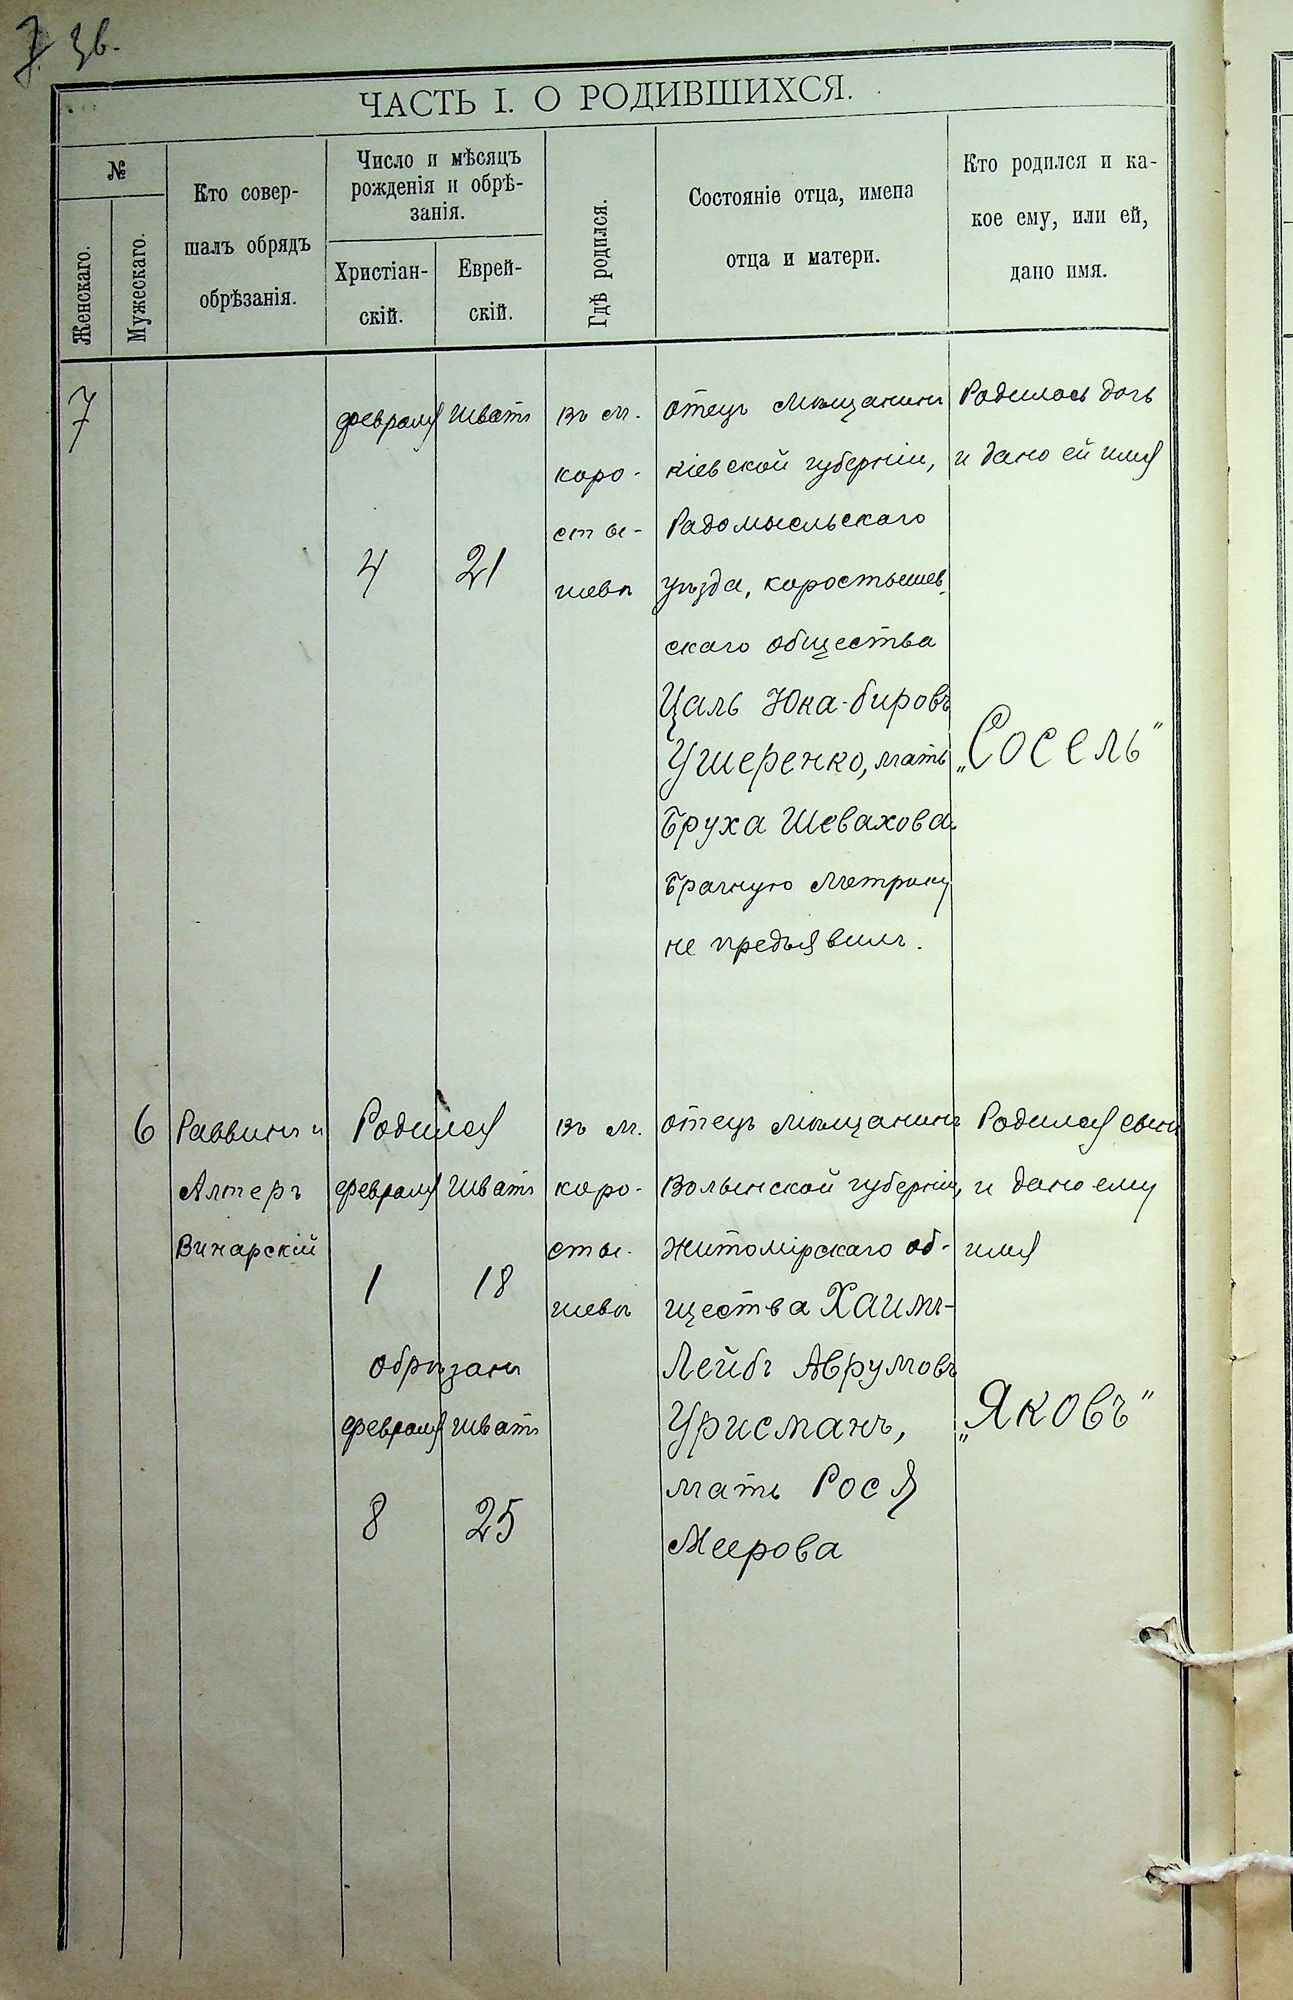 7 3в.
ЧАСТЬ I. О РОДИВШИХСЯ.
№
Женскаго.
Мужескаго.
Кто совер-
шалъ обрядъ
обрѣзанія.
Число и мѣсяцъ
рожденія и обрѣ-
занія.
Христіан-
скій.
Еврей-
скій.
Гдѣ родился.
Состояніе отца, имена
отца и матери.
Кто родился и ка-
кое ему, или ей,
дано имя.
7
февраля
4
Шватъ
21
въ м.
коро-
сты-
шевѣ
отецъ мѣщанинъ
кіевской губерніи,
Радомысльскаго
уѣзда, коростышев-
скаго общества
Цаль Юка-бировъ
Ушеренко, мать
Бруха Шевахова
Брачную метрику
не предъявилъ.
Родилась дочь
и дано ей имя
„Сосель"
6
Раввинъ и
Алтеръ
Винарскій
Родился
февраля Шватъ
1 18
обрѣзанъ
февраля Шватъ
8 25
въ м.
коро-
сты-
шевѣ
отецъ мѣщанинъ
Волынской губерніи,
житомірскаго об-
щества Хаимъ-
Лейбъ Аврумовъ
Урисманъ,
мать Рося
Меерова
Родился сынъ
и дано ему
имя
„Яковъ"